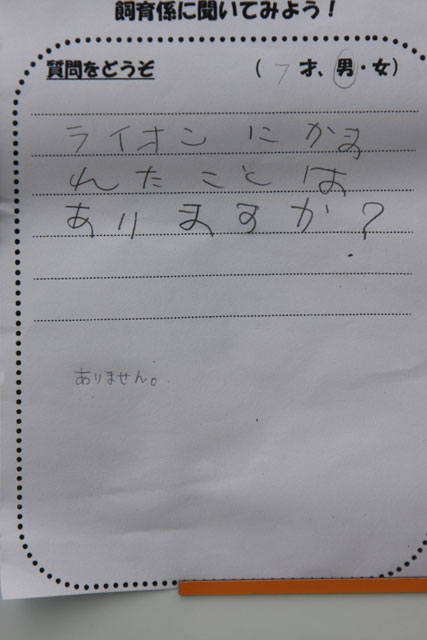 飼育係に聞いてみよう！
質問をどうぞ （ 7 才、男・女）
ライオン に かま
れ た こと は
あり ます か？
ありません。